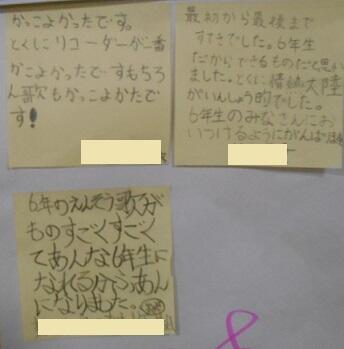 かっこよかったです。
とくにリコーダーが一番
かこよかったですもちろ
ん歌もかっこよかたで
す!
最初から最後まで
すてきでした。6年生
だからできるものだと思い
ました。とくに情熱大陸
がいんしょう的でした。
6年生のみなさんにお
いつけるようにがんばり
6年のえんそう歌が
ものすごくすごく
てあんな6年生に
なれるかふあん
になりました。